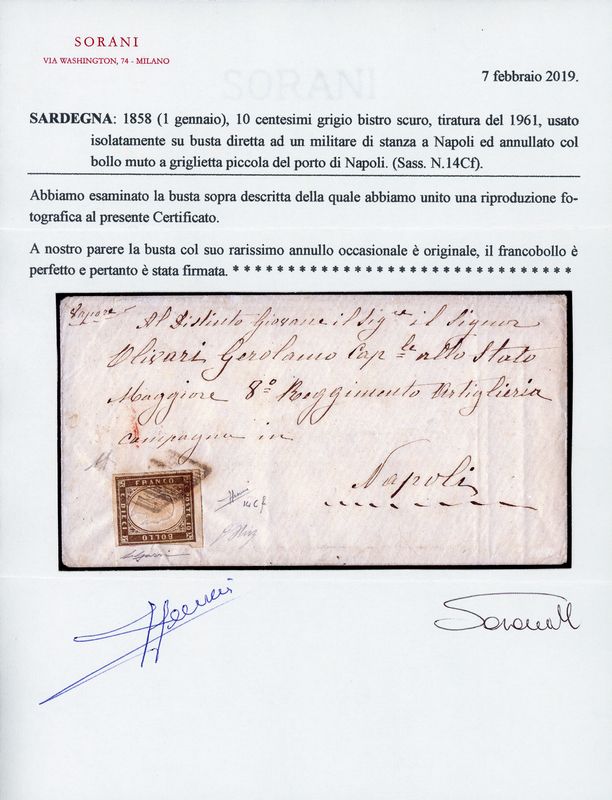 SORANI
VIA WASHINGTON, 74 - MILANO
7 febbraio 2019.
SARDEGNA: 1858 (1 gennaio), 10 centesimi grigio bistro scuro, tiratura del 1961, usato
isolatamente su busta diretta ad un militare di stanza a Napoli ed annullato col
bollo muto a griglietta piccola del porto di Napoli. (Sass. N.14Cf).
Abbiamo esaminato la busta sopra descritta della quale abbiamo unito una riproduzione fo-
tografica al presente Certificato.
A nostro parere la busta col suo rarissimo annullo occasionale è originale, il francobollo è
perfetto e pertanto è stata firmata. * * * * * * * * * * * * * * * * * * * * * * * * * * * * * * *
Vapore
Al Distinto Giovane il Sigre il Signor
Olivari Gerolamo Caple allo Stato
Maggiore 8o Reggimento Artiglieria
campagna in
Napoli
FRANCO
POSTE 10
C. DIECI
BOLLO
14Cf